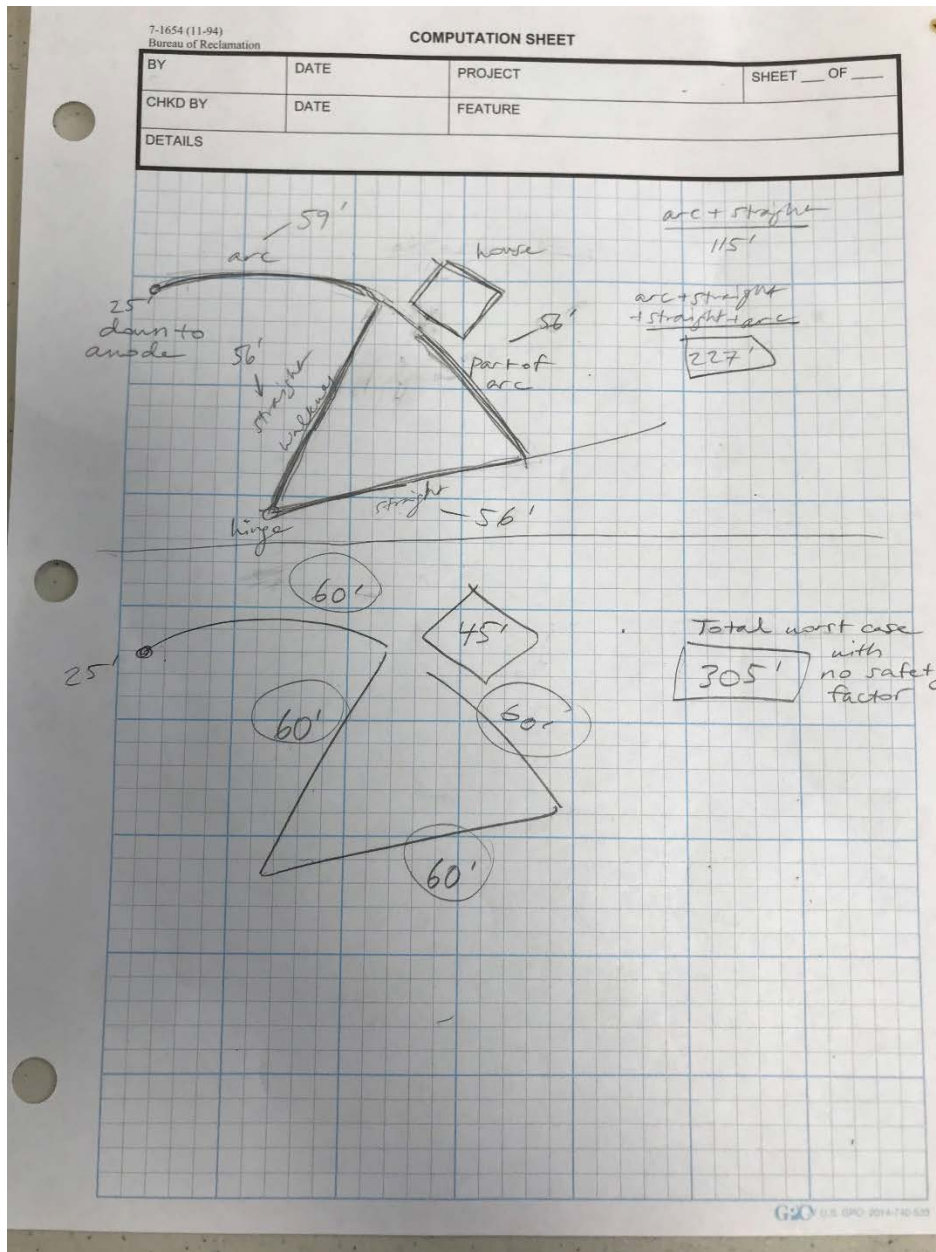 7-1654 (11-94)
Bureau of Reclamation
COMPUTATION SHEET
BY
DATE
PROJECT
SHEET ___ OF ___
CHKD BY
DATE
FEATURE
DETAILS
59'
arc
25'
down to
anode
house
arc + straight
115'
arc + straight
+ straight + arc
227'
56'
straight
walkway
56'
part of
arc
straight
56'
hinge
60'
45'
25'
60'
60'
60'
Total worst case
with
no safety
factor
305'
G2O U.S. GPO: 2014-740-535